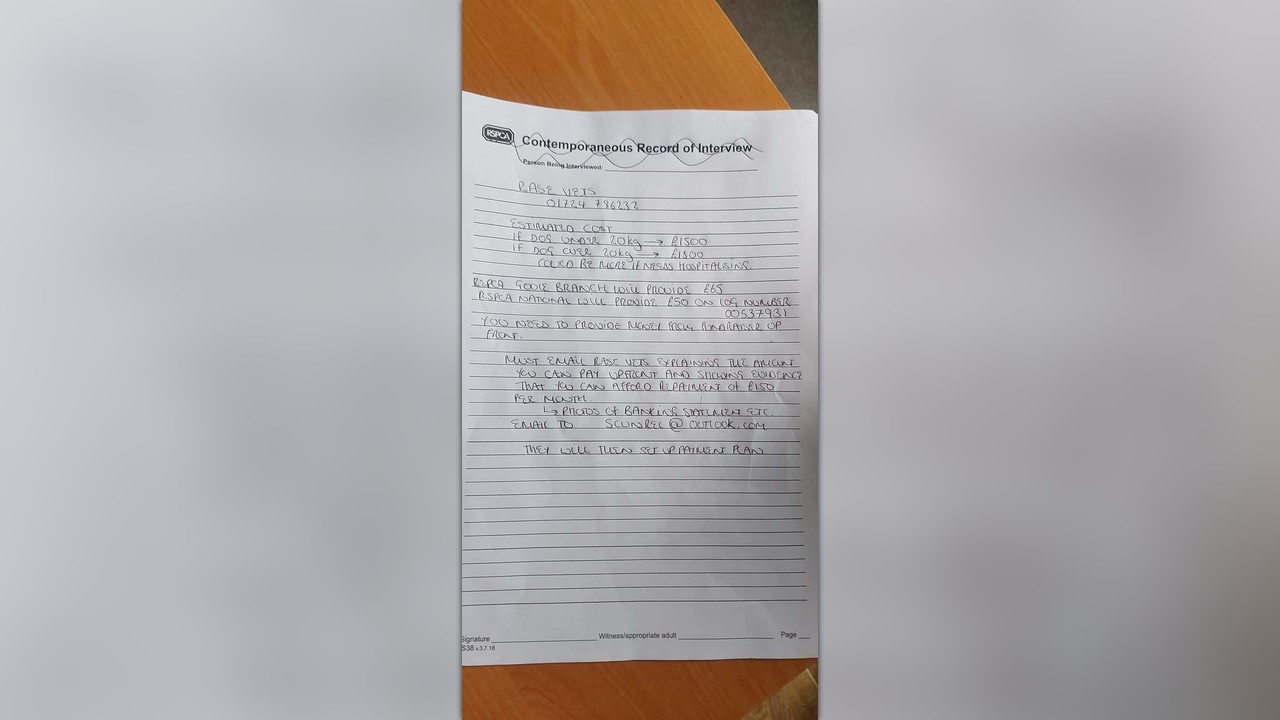 RSPCA
Contemporaneous Record of Interview
Person Being Interviewed:
RASE VETS
01724 786232
ESTIMATED COST
IF DOG UNDER 20kg → £1500
IF DOG OVER 20kg → £1800
COULD BE MORE IF NEEDS HOSPITALISING.
RSPCA GOOLE BRANCH WILL PROVIDE £65
RSPCA NATIONAL WILL PROVIDE £50 ON LOG NUMBER
00537931
YOU NEED TO PROVIDE MONEY FROM FUNDRAISER UP
FRONT.
MUST EMAIL RASE VETS EXPLAINING THE AMOUNT
YOU CAN PAY UPFRONT AND SHOWING EVIDENCE
THAT YOU CAN AFFORD REPAYMENT OF £150
PER MONTH.
↳ PHOTOS OF BANKING STATEMENT ETC.
EMAIL TO SCUNREC@OUTLOOK.COM
THEY WILL THEN SET UP PAYMENT PLAN
Signature Witness/appropriate adult Page
S38 v.3.7.18